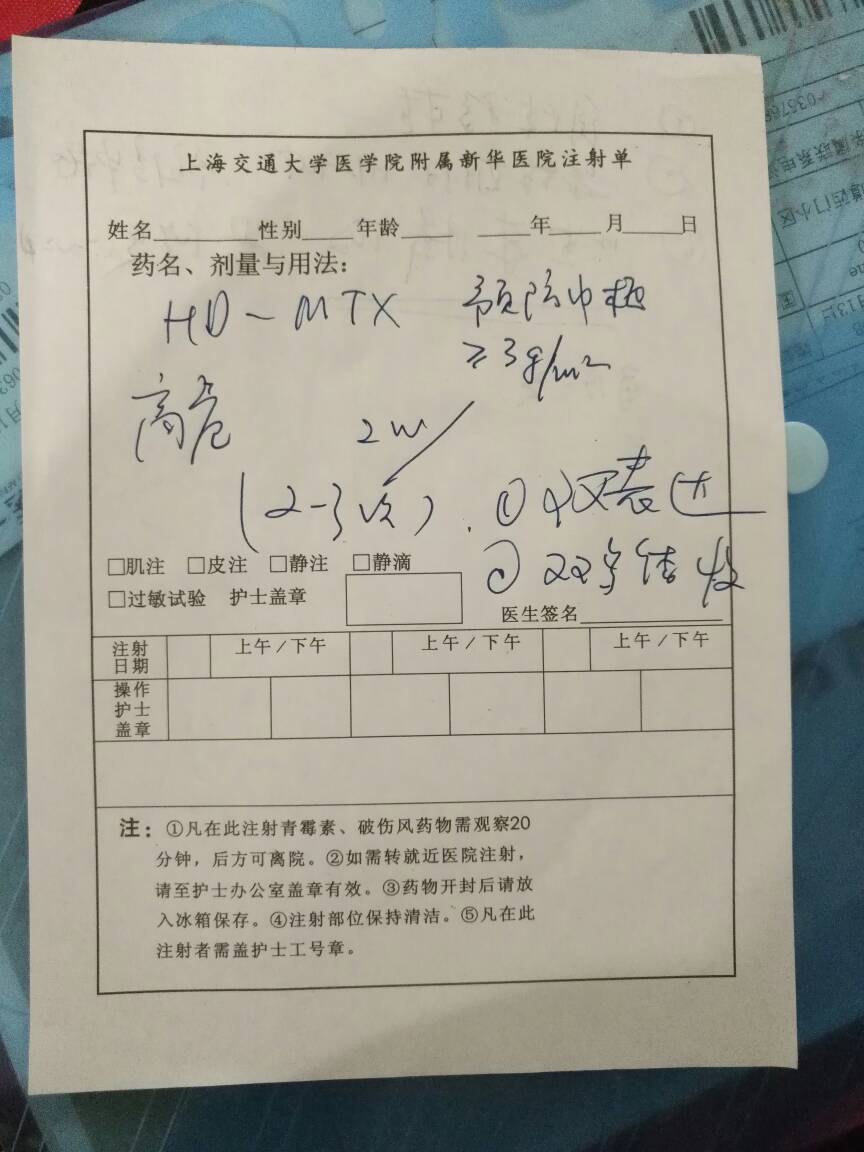 上海交通大学医学院附属新华医院注射单
姓名 性别 年龄 年 月 日
药名、剂量与用法:
HD-MTX 预防中枢
≥3g/m2
高危
2W
(2-3次). ①双表达
②双
□肌注 □皮注 □静注 □静滴
□过敏试验 护士盖章
医生签名
注射日期 上午/下午 上午/下午 上午/下午
操作护士盖章
注:①凡在此注射青霉素、破伤风药物需观察20
分钟,后方可离院。②如需转就近医院注射,
请至护士办公室盖章有效。③药物开封后请放
入冰箱保存。④注射部位保持清洁。⑤凡在此
注射者需盖护士工号章。